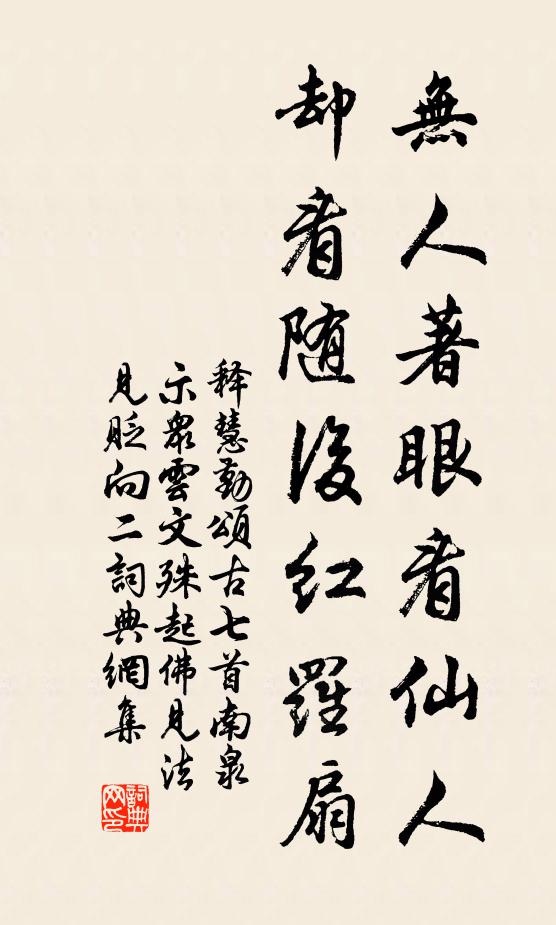 無人著眼看仙人
却看随後红羅扇
释慧勤頌古七首南泉
示衆雲文殊起佛見法
見貶向二詞典網集
詞典网印